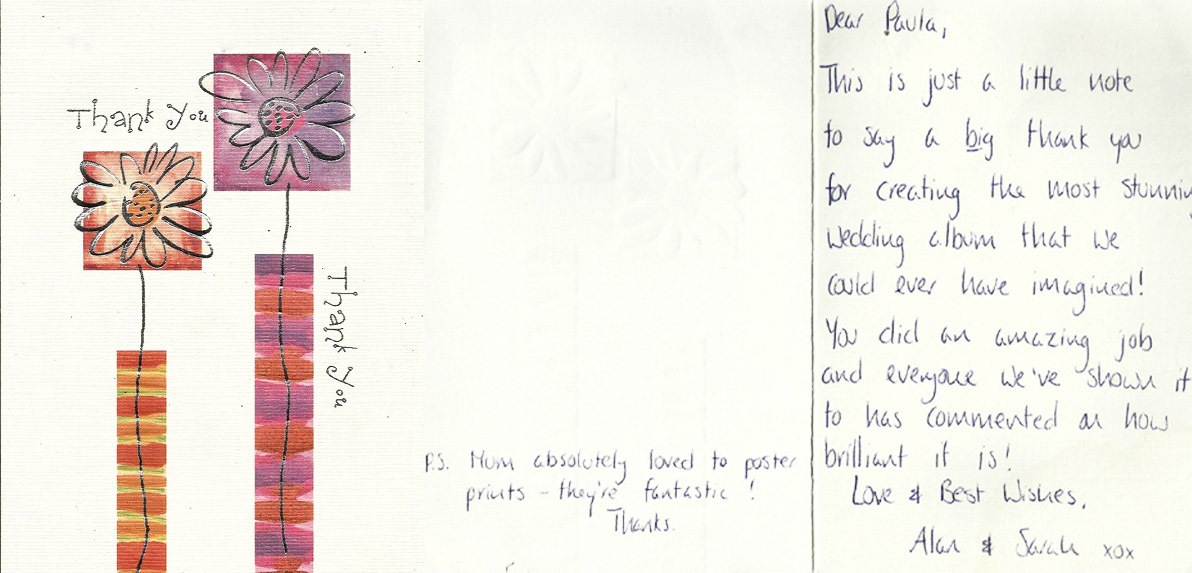 Thank You
Thank You
P.S. Mum absolutely loved to poster
prints - they're fantastic !
Thanks.
Dear Paula,
This is just a little note
to say a big thank you
for creating the most stunnin
wedding album that we
could ever have imagined!
You did an amazing job
and everyone we've shown it
to has commented on how
brilliant it is!
Love & Best Wishes,
Alan & Sarah xox